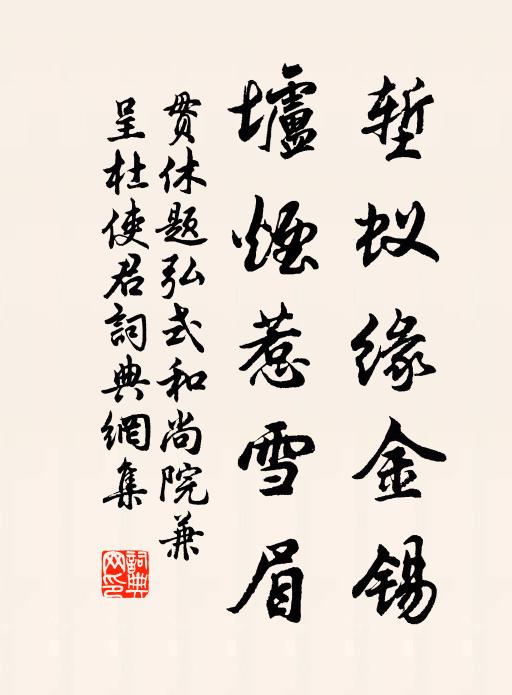 堑蚁缘金锡
壚煙惹雪眉
贯休题弘式和尚院兼
呈杜使君詞典網集
詞典網印